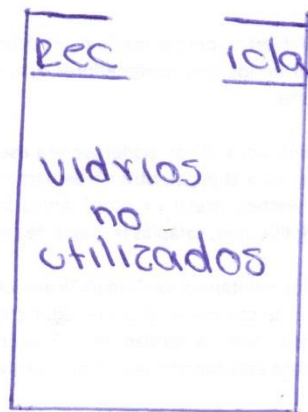 Rec icla
vidrios
no
utilizados